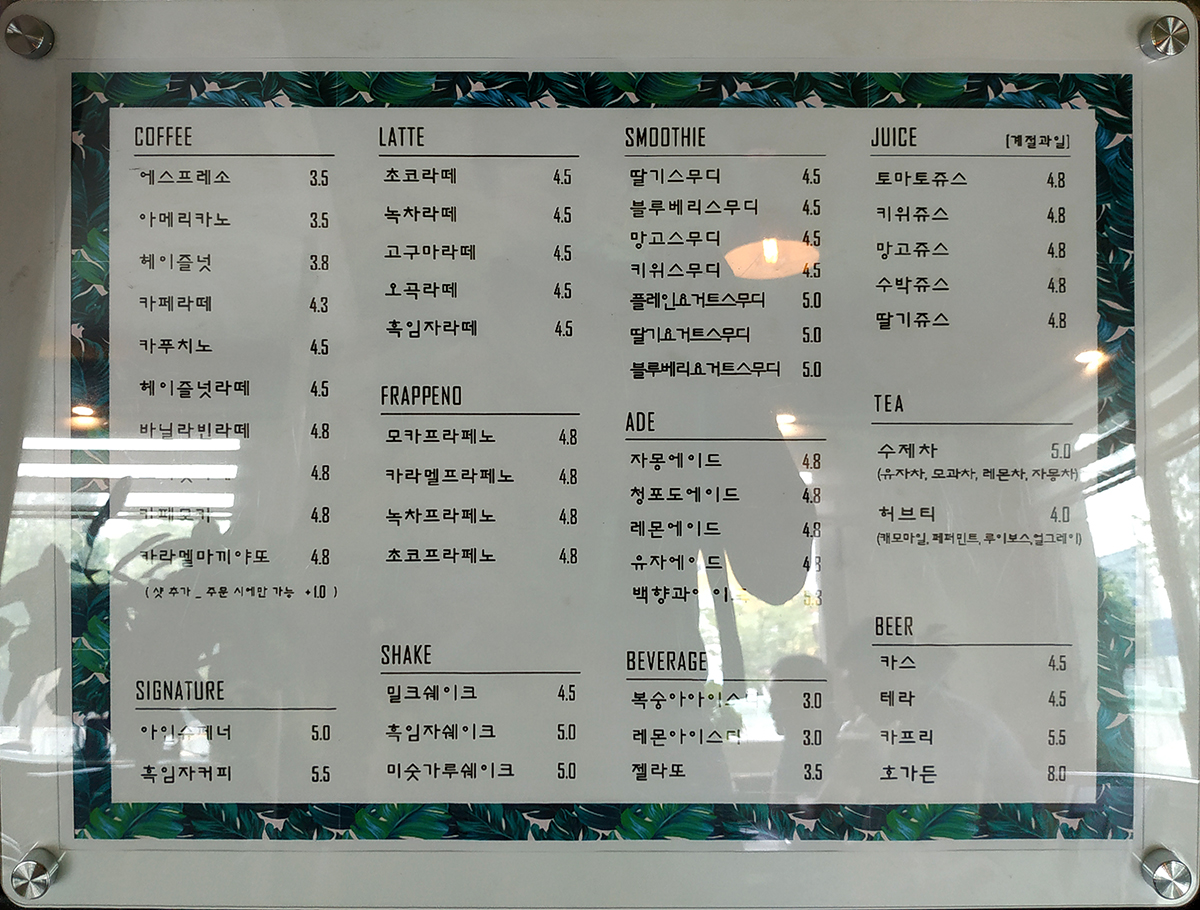 COFFEE
에스프레소 3.5
아메리카노 3.5
헤이즐넛 3.8
카페라떼 4.3
카푸치노 4.5
헤이즐넛라떼 4.5
바닐라빈라떼 4.8
4.8
카페모카 4.8
카라멜마끼야또 4.8
( 샷 추가 _ 주문 시에만 가능 +1.0 )
SIGNATURE
아인슈페너 5.0
흑임자커피 5.5
LATTE
초코라떼 4.5
녹차라떼 4.5
고구마라떼 4.5
오곡라떼 4.5
흑임자라떼 4.5
FRAPPENO
모카프라페노 4.8
카라멜프라페노 4.8
녹차프라페노 4.8
초코프라페노 4.8
SHAKE
밀크쉐이크 4.5
흑임자쉐이크 5.0
미숫가루쉐이크 5.0
SMOOTHIE
딸기스무디 4.5
블루베리스무디 4.5
망고스무디 4.5
키위스무디 4.5
플레인요거트스무디 5.0
딸기요거트스무디 5.0
블루베리요거트스무디 5.0
ADE
자몽에이드 4.8
청포도에이드 4.8
레몬에이드 4.8
유자에이드 4.8
백향과에이드 5.3
BEVERAGE
복숭아아이스티 3.0
레몬아이스티 3.0
젤라또 3.5
JUICE [계절과일]
토마토쥬스 4.8
키위쥬스 4.8
망고쥬스 4.8
수박쥬스 4.8
딸기쥬스 4.8
TEA
수제차 5.0
(유자차, 모과차, 레몬차, 자몽차)
허브티 4.0
(캐모마일, 페퍼민트, 루이보스,얼그레이)
BEER
카스 4.5
테라 4.5
카프리 5.5
호가든 8.0